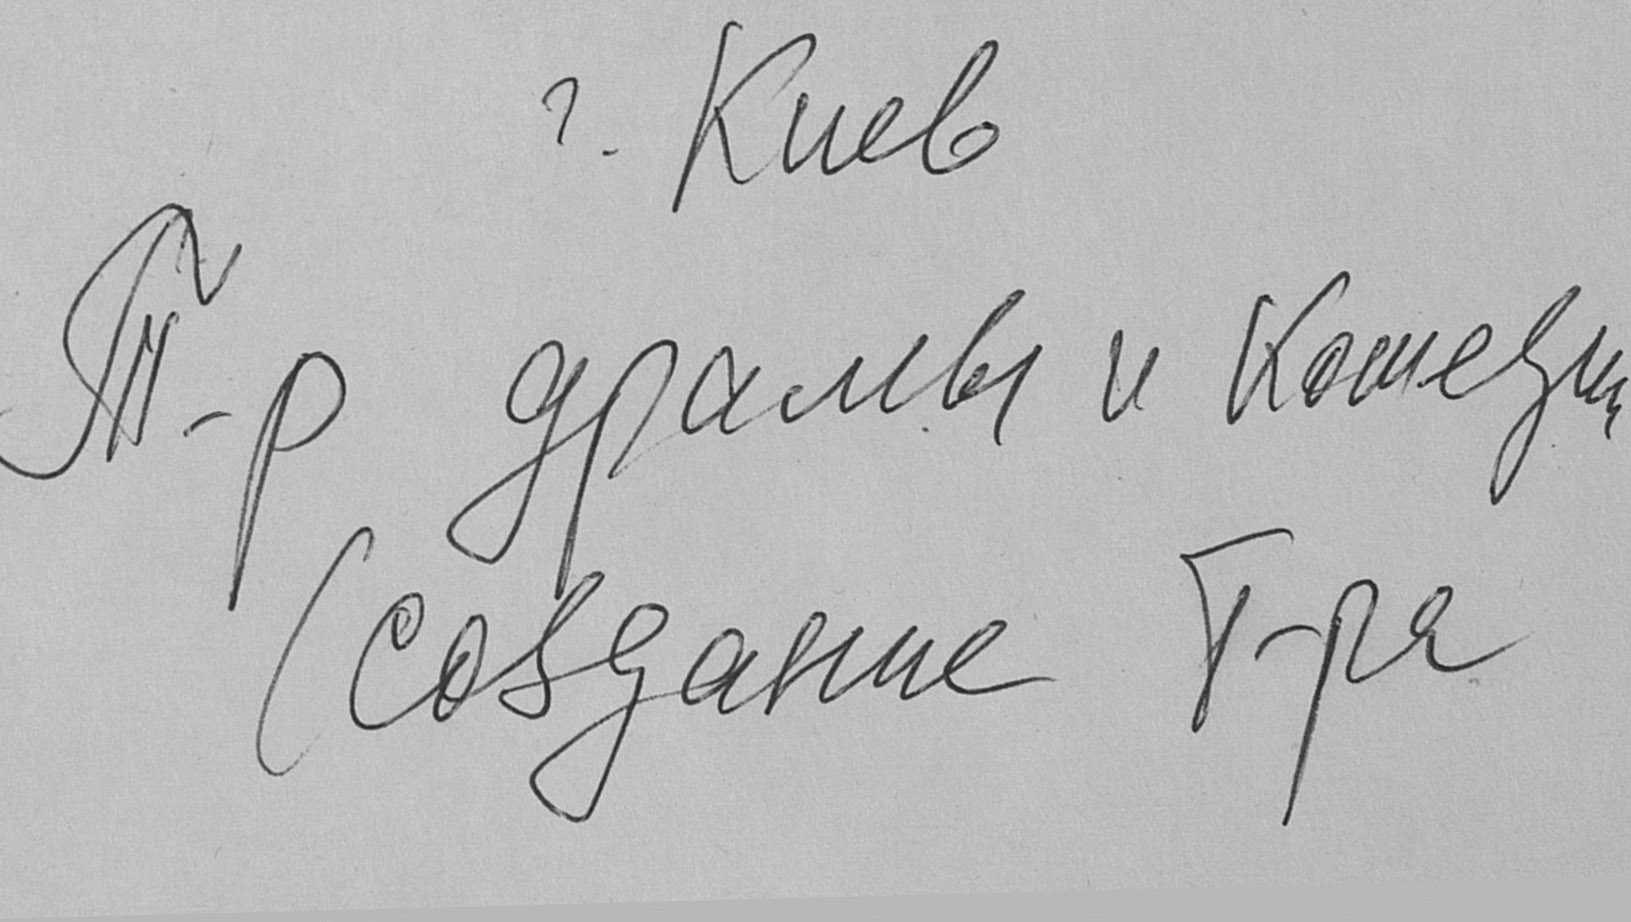 г. Киев
Т-р драмы и комедии
(создание т-ра